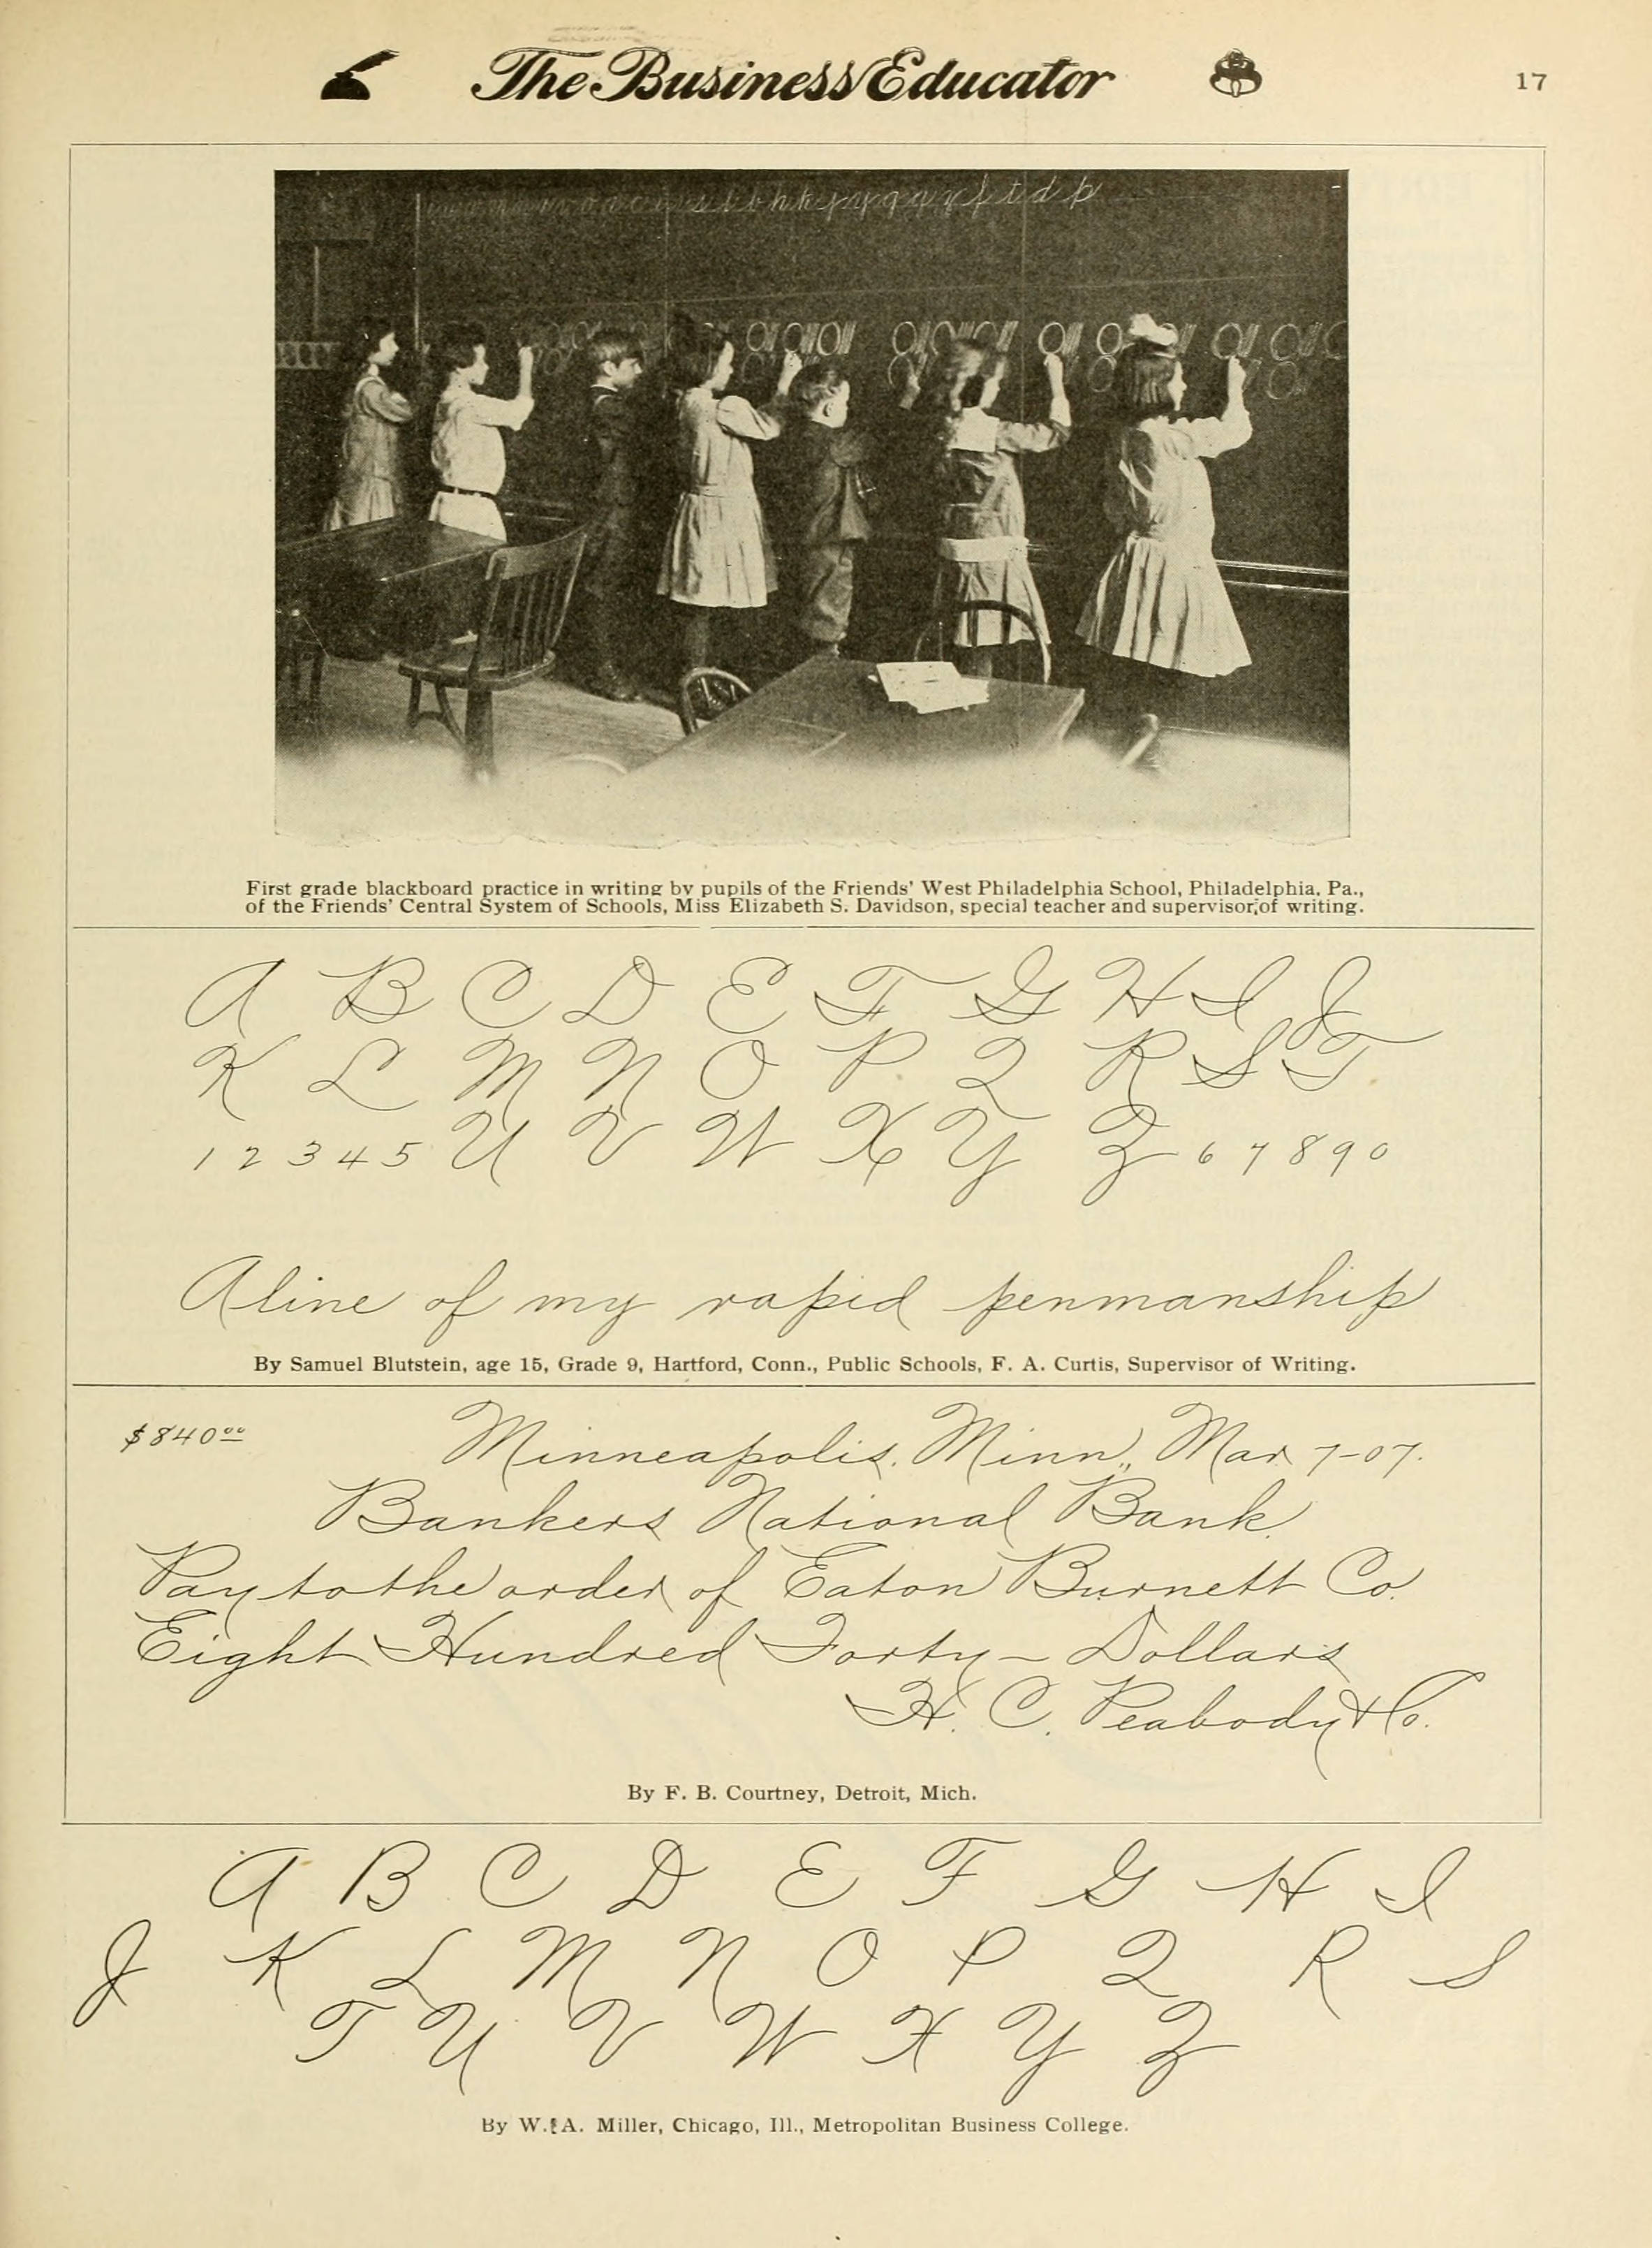 The Business Educator
17
First grade blackboard practice in writing by pupils of the Friends' West Philadelphia School, Philadelphia, Pa.,
of the Friends' Central System of Schools, Miss Elizabeth S. Davidson, special teacher and supervisor of writing.
A B C D E F G H I J
K L M N O P Q R S T
1 2 3 4 5 U V W X Y Z 6 7 8 9 0
A line of my rapid penmanship
By Samuel Blutstein, age 15, Grade 9, Hartford, Conn., Public Schools, F. A. Curtis, Supervisor of Writing.
$840.00 Minneapolis, Minn., Mar 7-07.
Bankers National Bank.
Pay to the order of Eaton Burnett Co.
Eight Hundred Forty — Dollars
H. C. Peabody & Co.
By F. B. Courtney, Detroit, Mich.
A B C D E F G H I
J K L M N O P Q R S
T U V W X Y Z
By W. A. Miller, Chicago, Ill., Metropolitan Business College.